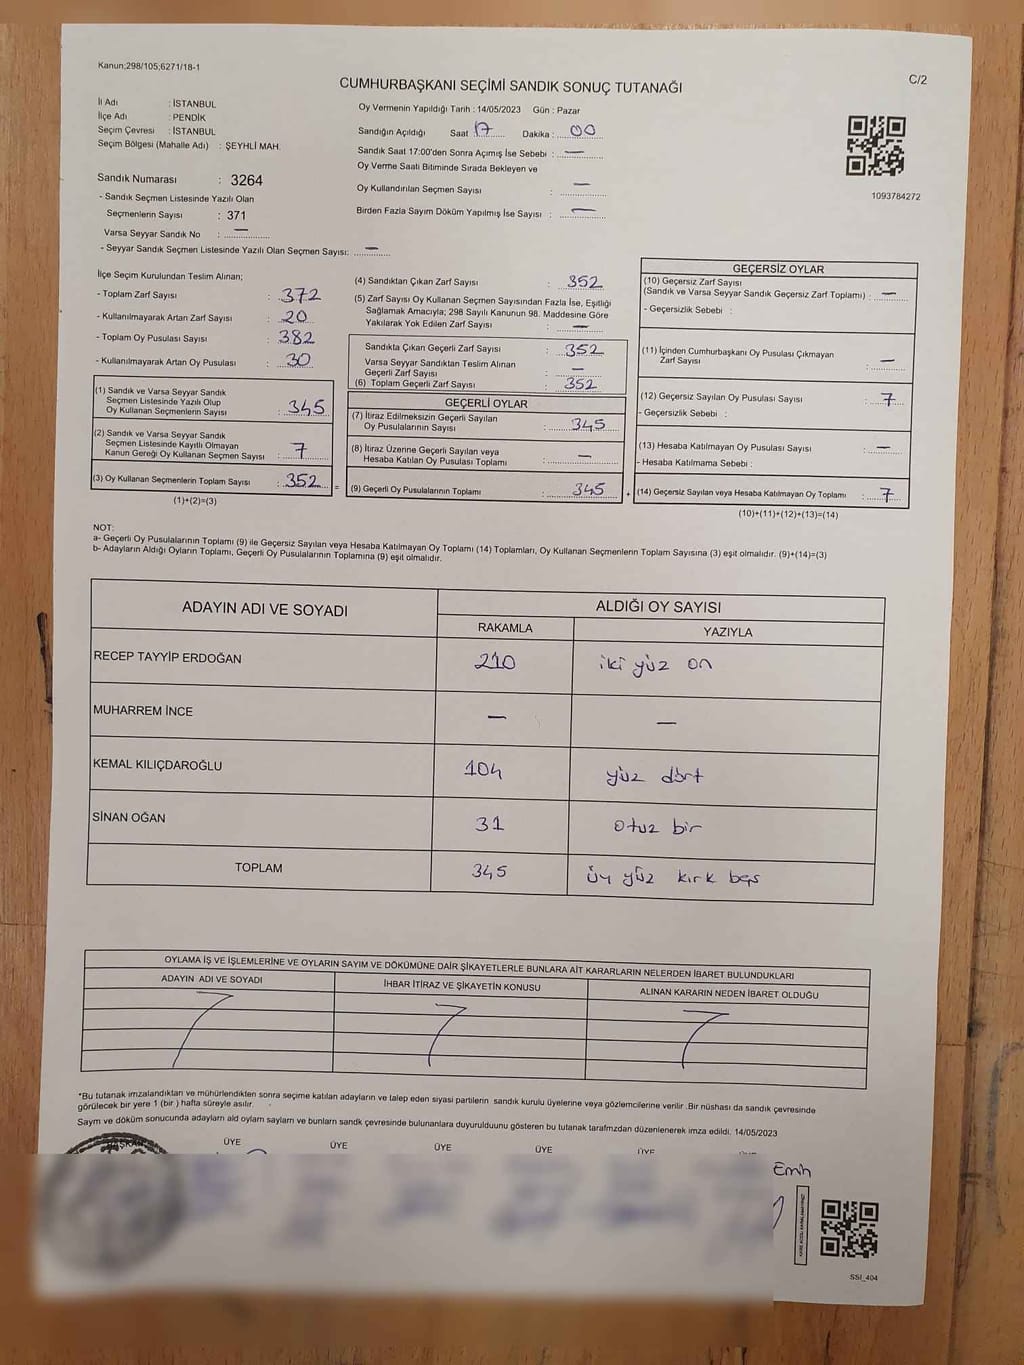 Kanun;298/105;6271/18-1
C/2
CUMHURBAŞKANI SEÇİMİ SANDIK SONUÇ TUTANAĞI
İl Adı : İSTANBUL
İlçe Adı : PENDİK
Seçim Çevresi : İSTANBUL
Seçim Bölgesi (Mahalle Adı) : ŞEYHLİ MAH.
Sandık Numarası : 3264
- Sandık Seçmen Listesinde Yazılı Olan
Seçmenlerin Sayısı : 371
Varsa Seyyar Sandık No : —
- Seyyar Sandık Seçmen Listesinde Yazılı Olan Seçmen Sayısı: —
Oy Vermenin Yapıldığı Tarih : 14/05/2023 Gün : Pazar
Sandığın Açıldığı Saat 17 Dakika : 00
Sandık Saat 17:00'den Sonra Açımış İse Sebebi : —
Oy Verme Saati Bitiminde Sırada Bekleyen ve
Oy Kullandırılan Seçmen Sayısı : —
Birden Fazla Sayım Döküm Yapılmış İse Sayısı : —
1093784272
İlçe Seçim Kurulundan Teslim Alınan;
- Toplam Zarf Sayısı : 372
- Kullanılmayarak Artan Zarf Sayısı : 20
- Toplam Oy Pusulası Sayısı : 382
- Kullanılmayarak Artan Oy Pusulası : 30
(1) Sandık ve Varsa Seyyar Sandık
Seçmen Listesinde Yazılı Olup
Oy Kullanan Seçmenlerin Sayısı : 345
(2) Sandık ve Varsa Seyyar Sandık
Seçmen Listesinde Kayıtlı Olmayan
Kanun Gereği Oy Kullanan Seçmen Sayısı : 7
(3) Oy Kullanan Seçmenlerin Toplam Sayısı : 352
(1)+(2)=(3)
=
(4) Sandıktan Çıkan Zarf Sayısı : 352
(5) Zarf Sayısı Oy Kullanan Seçmen Sayısından Fazla İse, Eşitliği
Sağlamak Amacıyla; 298 Sayılı Kanunun 98. Maddesine Göre
Yakılarak Yok Edilen Zarf Sayısı : —
Sandıkta Çıkan Geçerli Zarf Sayısı : 352
Varsa Seyyar Sandıktan Teslim Alınan
Geçerli Zarf Sayısı : —
(6) Toplam Geçerli Zarf Sayısı : 352
GEÇERLİ OYLAR
(7) İtiraz Edilmeksizin Geçerli Sayılan
Oy Pusulalarının Sayısı : 345
(8) İtiraz Üzerine Geçerli Sayılan veya
Hesaba Katılan Oy Pusulası Toplamı : —
(9) Geçerli Oy Pusulalarının Toplamı : 345
+
GEÇERSİZ OYLAR
(10) Geçersiz Zarf Sayısı
(Sandık ve Varsa Seyyar Sandık Geçersiz Zarf Toplamı) : —
- Geçersizlik Sebebi :
(11) İçinden Cumhurbaşkanı Oy Pusulası Çıkmayan
Zarf Sayısı : —
(12) Geçersiz Sayılan Oy Pusulası Sayısı : 7
- Geçersizlik Sebebi :
(13) Hesaba Katılmayan Oy Pusulası Sayısı : —
- Hesaba Katılmama Sebebi :
(14) Geçersiz Sayılan veya Hesaba Katılmayan Oy Toplamı : 7
(10)+(11)+(12)+(13)=(14)
NOT:
a- Geçerli Oy Pusulalarının Toplamı (9) ile Geçersiz Sayılan veya Hesaba Katılmayan Oy Toplamı (14) Toplamları, Oy Kullanan Seçmenlerin Toplam Sayısına (3) eşit olmalıdır. (9)+(14)=(3)
b- Adayların Aldığı Oyların Toplamı, Geçerli Oy Pusulalarının Toplamına (9) eşit olmalıdır.
ADAYIN ADI VE SOYADI ALDIĞI OY SAYISI
RAKAMLA YAZIYLA
RECEP TAYYİP ERDOĞAN 210 iki yüz on
MUHARREM İNCE — —
KEMAL KILIÇDAROĞLU 104 yüz dört
SİNAN OĞAN 31 otuz bir
TOPLAM 345 üç yüz kırk beş
OYLAMA İŞ VE İŞLEMLERİNE VE OYLARIN SAYIM VE DÖKÜMÜNE DAİR ŞİKAYETLERLE BUNLARA AİT KARARLARIN NELERDEN İBARET BULUNDUKLARI
ADAYIN ADI VE SOYADI İHBAR İTİRAZ VE ŞİKAYETİN KONUSU ALINAN KARARIN NEDEN İBARET OLDUĞU
*Bu tutanak imzalandıktan ve mühürlendikten sonra seçime katılan adayların ve talep eden siyasi partilerin sandık kurulu üyelerine veya gözlemcilerine verilir .Bir nüshası da sandık çevresinde
görülecek bir yere 1 (bir ) hafta süreyle asılır.
Sayım ve döküm sonucunda adayların ald oylam sayları ve bunların sandk çevresinde bulunanlara duyurulduunu gösteren bu tutanak tarafmzdan düzenlenerek imza edildi. 14/05/2023
BAŞKAN ÜYE ÜYE ÜYE ÜYE ÜYE
Emin
SSİ_404